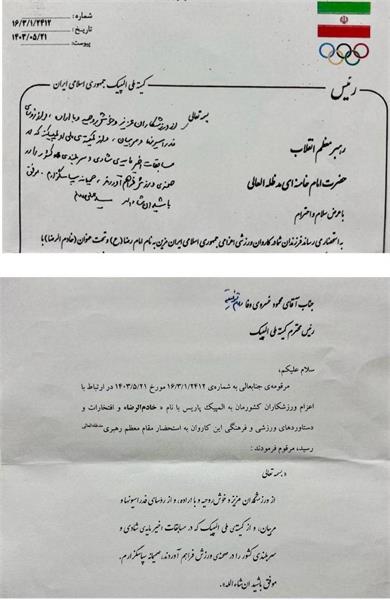 شماره: ۱۶/۳/۱/۲۴۱۲
تاریخ: ۱۴۰۳/۰۵/۲۱
پیوست:
رئیس
کمیته ملی المپیک جمهوری اسلامی ایران
بسمه تعالی
رهبر معظم انقلاب
حضرت امام خامنه ای مد ظله العالی
با عرض سلام و احترام
از ورزشکاران عزیز و خوش روحیه و با اراده، و از رؤسای
فدراسیونها و مربیان، و از کمیته‌ی ملی المپیک که در
مسابقات اخیر مایه‌ی شادی و سربلندی کشور را در
صحنه‌ی ورزش فراهم آوردند، صمیمانه سپاسگزارم. موفق
باشید ان شاءالله
به استحضار می رساند فرزندان شما در کاروان ورزشی اعزامی جمهوری اسلامی ایران مزین به نام امام رضا (ع) و تحت عنوان (خادم الرضا) با
جناب آقای محمود خسروی وفا
رئیس محترم کمیته ملی المپیک
سلام علیکم،
مرقومه‌ی جنابعالی به شماره‌ی ۱۶/۳/۱/۲۴۱۲ مورخ ۱۴۰۳/۵/۲۱ در ارتباط با
اعزام ورزشکاران کشورمان به المپیک پاریس با نام « خادم الرضا» و افتخارات و
دستاوردهای ورزشی و فرهنگی این کاروان به استحضار مقام معظم رهبری مدظله‌العالی
رسید، مرقوم فرمودند :
« بسمه تعالی
از ورزشکاران عزیز و خوش روحیه و با اراده، و از رؤسای فدراسیونها و
مربیان، و از کمیته‌ی ملی المپیک که در مسابقات اخیر مایه‌ی شادی و
سربلندی کشور را در صحنه‌ی ورزش فراهم آوردند، صمیمانه سپاسگزارم.
موفق باشید ان شاء الله».